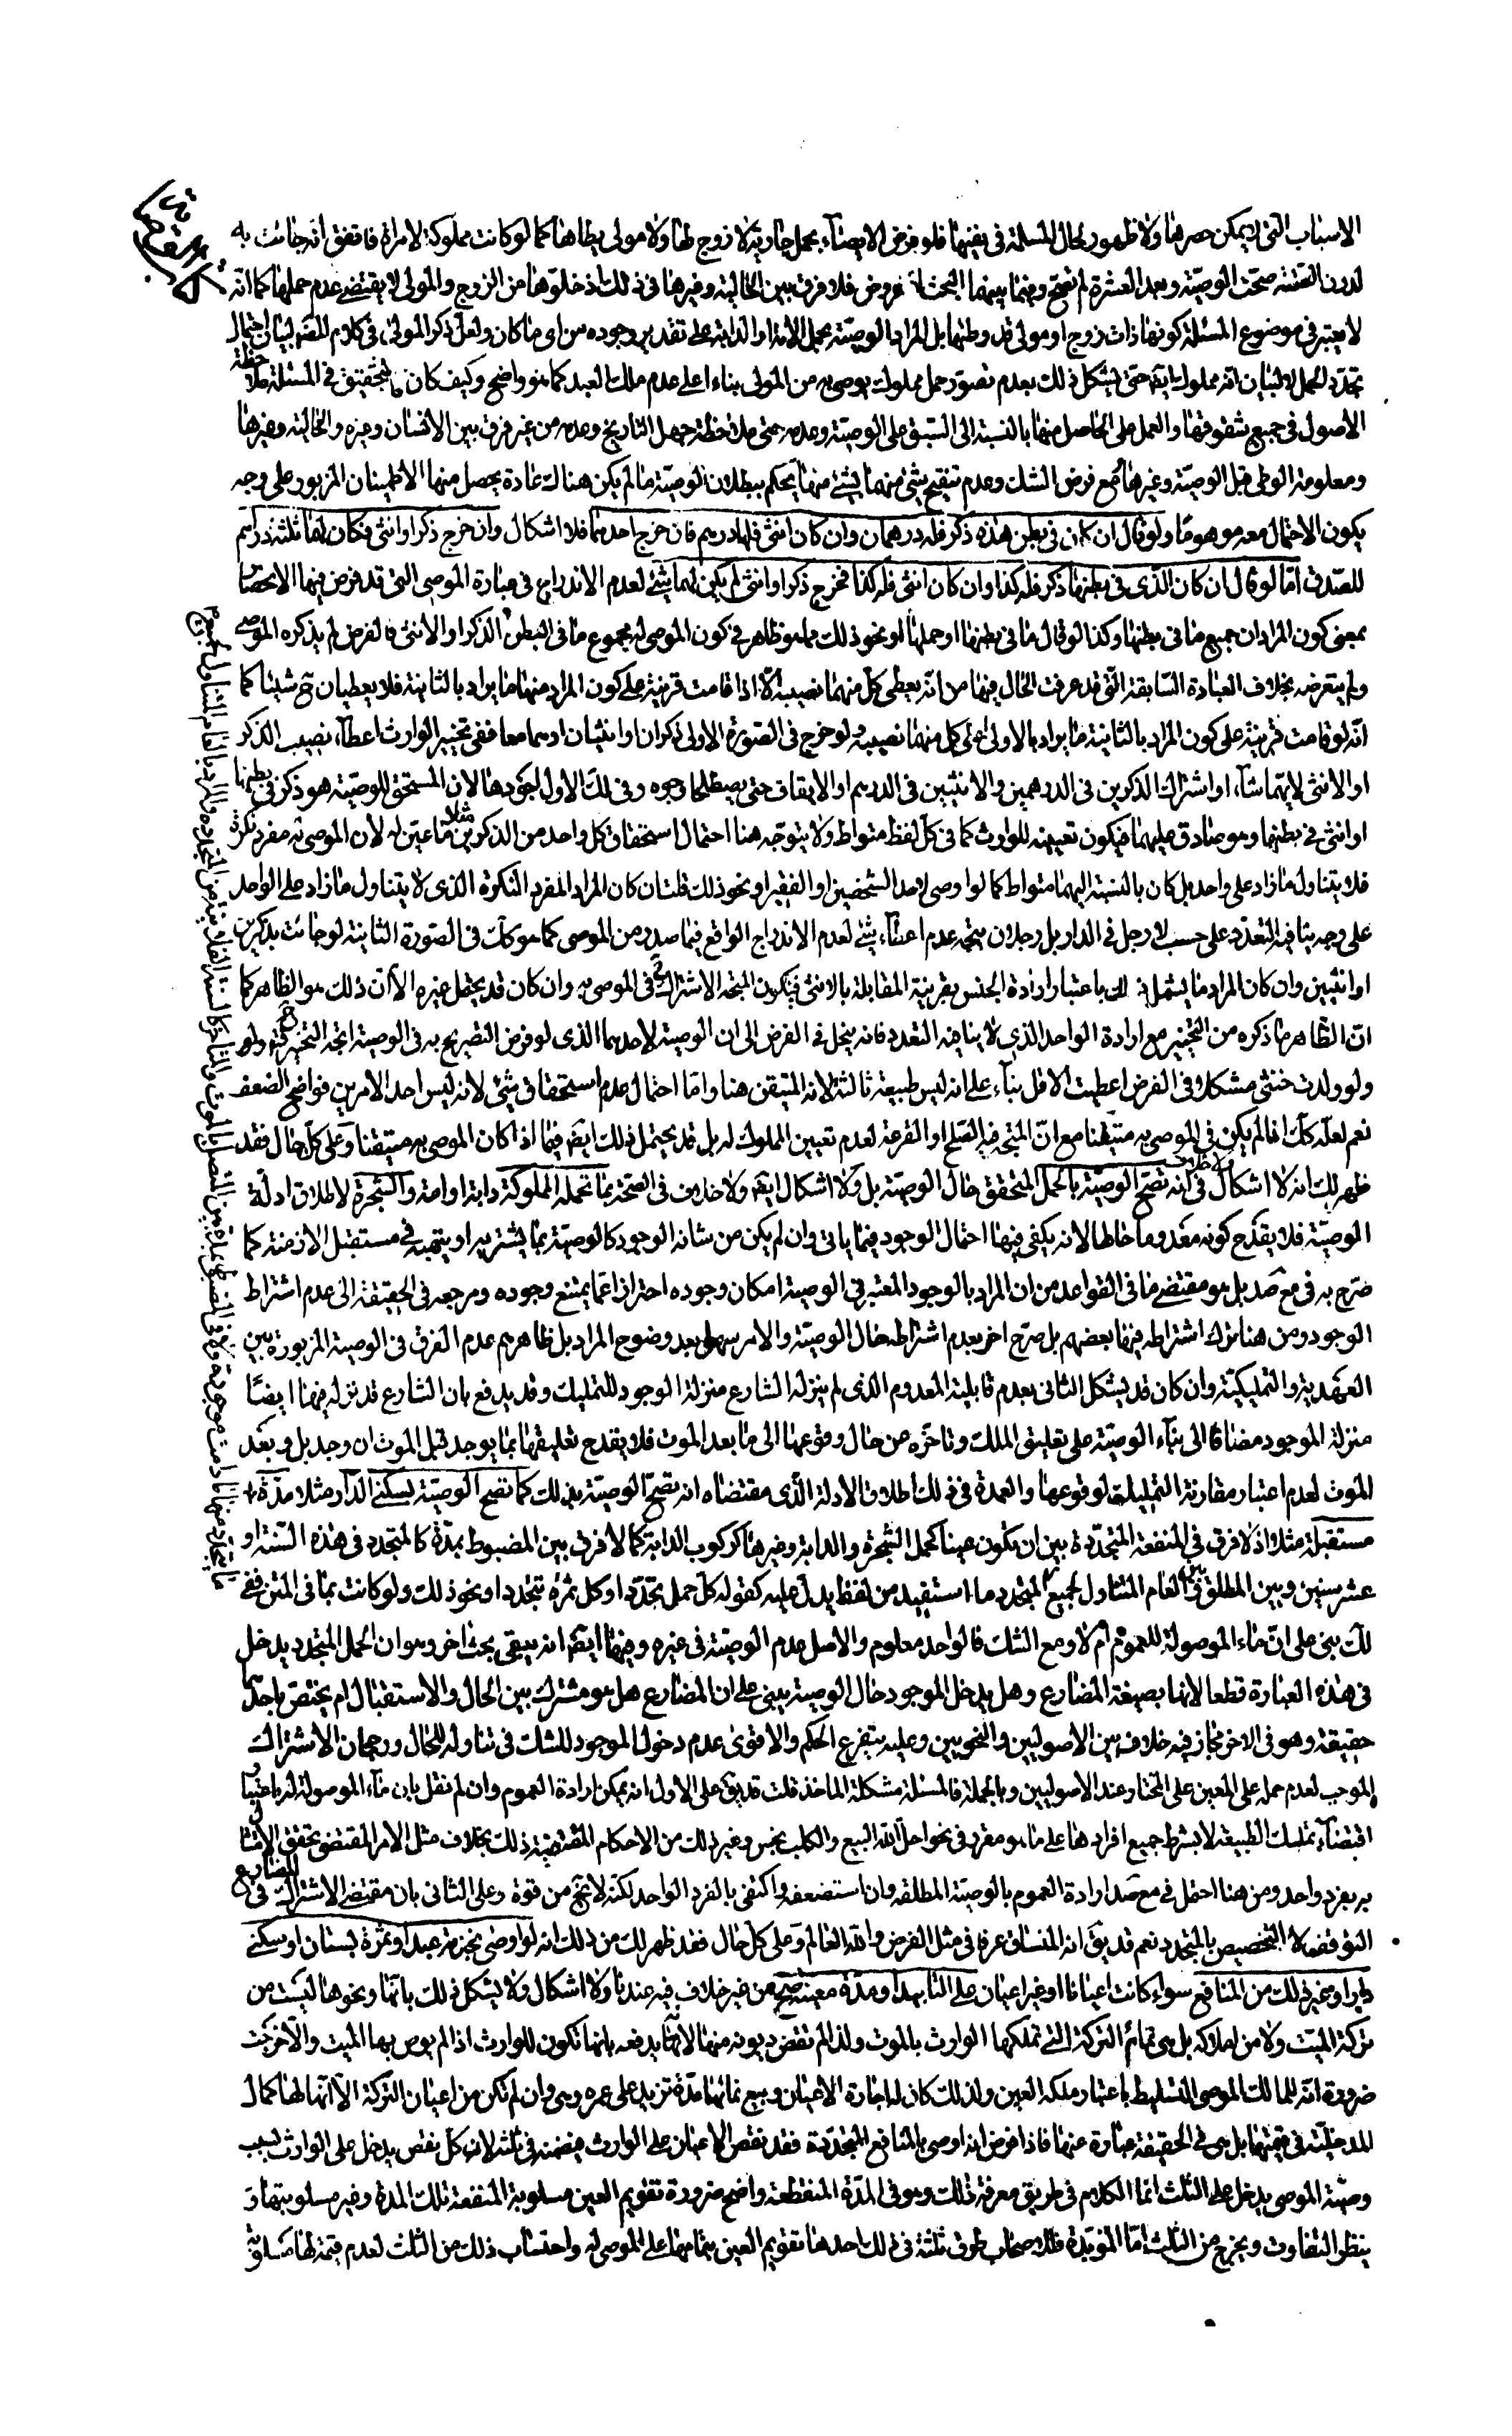 الاسباب التى لا يمكن حصرها ولا ظهور لحال المسلمة فى نفيها فلو فرض الايصاء بحمل جارية لا زوج لها ولا مولى يطاها كما لو كانت مملوكة لامراة فاتفق انه جائت به
لدون الستة صحت الوصية وبعد العشرة لم تصح وفيما بينهما البحث فلا فرق بين الخالية وغيرها فى ذلك اذ خلوها من الزوج والمولى لا يقتضى عدم حملها كما انه
لا يعتبر فى موضوع المسئلة كونها ذات زوج او مولى قد وطئها بل المراد الوصية بحمل الامة او الدابة على تقدير وجوده من اى ما كان ولعل ذكر المولى فى كلام المصنف لبيان احتمال
تجدد الحمل لا لبيان انه مملوك ايضا حتى يشكل ذلك بعدم تصور حمل مملوك يوصى به من المولى بناءا على عدم ملك العبد كما هو واضح وكيف كان فالتحقيق فى المسئلة ملاحظة
الاصول فى جميع شقوقها والعمل على الحاصل منها بالنسبة الى السبق على الوصية وعدمه حتى ملاحظة جهل التاريخ وعدمه من غير فرق بين الانسان وغيره والخالية وغيرها
ومعلومة الوطى قبل الوصية وغيرها فمع فرض الشك وعدم تنقيح شئ منهما بشئ منها يحكم ببطلان الوصية ما لم يكن هناك عادة يحصل منها الاطمينان المزبور على وجه
يكون الاحتمال معه موهوما ولو قال ان كان فى بطن هذه ذكر فله درهمان وان كان انثى فلها درهم فان خرج احدهما فلا اشكال وان خرج ذكر او انثى فكان لهما ثلثة دراهم
للصدق اما لو قال ان كان الذى فى بطنها ذكر فله كذا وان كان انثى فله كذا فخرج ذكرا وانثى لم يكن لهما شئ لعدم الاندراج فى عبارة الموصى التى قد فرض فيها الانحصار
بمعنى كون المراد ان جميع ما فى بطنها وكذا لو قال ما فى بطنها او حملها او نحو ذلك مما هو ظاهر فى كون الموصى له مجموع ما فى البطن الذكر او الانثى فالفرض لم يذكره الموصى
ولم يتعرض بخلاف العبارة السابقة التى قد عرفت الحال فيها من انه يعطى كل منهما نصيبه الا اذا قامت قرينة على كون المراد منها ما يراد بالثانية فلا يعطيان ح شيئا كما
انه لو قامت قرينة على كون المراد بالثانية ما يراد بالاولى اعطى كل منهما نصيبه ولو خرج فى الصورة الاولى ذكران او انثيان او هما معا ففى تخيير الوارث اعطاء نصيب الذكر
او الانثى لايهما شاء او اشتراك الذكرين فى الدرهمين والانثيين فى الدرهم او الايقاف حتى يصطلحا وجوه وفى لك الاول اجودها لان المستحق للوصية هو ذكر فى بطنها
او انثى فى بطنها وهو صادق عليهما فيكون تعيينه للوارث كما فى كل لفظ متواط ولا يتوجه هنا احتمال استحقاق كل واحد من الذكرين مثلا ما عين له لان الموصى له مفرد نكرة
فلا يتناول ما زاد على واحد بل كان بالنسبة اليهما متواط كما لو اوصى لاحد الشخصين او الفقير او نحو ذلك قلت ان كان المراد المفرد النكرة الذى لا يتناول ما زاد على الواحد
على وجه ينافيه التعدد على حسب لا رجل فى الدار بل رجلان يتجه عدم اعطاء شئ لعدم الاندراج الواقع فيما صدر من الموصى كما هو كك فى الصورة الثانية لو جائت بذكرين
او انثيين وان كان المراد ما يشمل ذلك باعتبار ارادة الجنس بقرينة المقابلة بالانثى فيكون المتجه الاشتراك ح فى الموصى به وان كان قد يحتمل غيره الا ان ذلك هو الظاهر كما
ان الظاهر ما ذكره من التخيير مع ارادة الواحد الذى لا ينافيه التعدد فانه ينحل فى الفرض الى ان الوصية لاحدهما الذى لو فرض التصريح به فى الوصية اتجه التخيير ح
ولو ولدت خنثى مشكلا فى الفرض اعطيت الاقل بناء على انه ليس طبيعة ثالثة لانه المتيقن هنا واما احتمال عدم استحقاق شئ لانه ليس احد الامرين فواضح الضعف
نعم لعله كك اذا لم يكن فى الموصى به متيقنا مع ان المتجه فيه الصلح او القرعة لعدم تعيين المملوك له بل قد يحتمل ذلك ايضا فيما اذا كان الموصى به متيقنا وعلى كل حال فقد
ظهر لك انه لا اشكال ولا خلاف فى انه تصح الوصية بالحمل المتحقق حال الوصية بل ولا اشكال ايضا ولا خلاف فى الصحة بما تحمله المملوكة دابة او امة والشجرة لاطلاق ادلة
الوصية فلا يقدح كونه معدوما حالها لانه يكفى فيها احتمال الوجود فيما ياتى وان لم يكن من شانه الوجود كالوصية بما يشتريه او يتهبه فى مستقبل الازمنة كما
صرح به فى مع صد بل هو مقتضى ما فى القواعد من ان المراد بالوجود المعتبر فى الوصية امكان وجوده احترازا عما يمتنع وجوده ومرجعه فى الحقيقة الى عدم اشتراط
الوجود ومن هنا ترك اشتراطه فيها بعضهم بل صرح اخر بعدم اشتراطه حال الوصية والامر سهل بعد وضوح المراد بل ظاهرهم عدم الفرق فى الوصية المزبورة بين
العهدية والتمليكية وان كان قد يشكل الثانى بعدم قابلية المعدوم الذى لم ينزله الشارع منزلة الوجود للتمليك وقد يدفع بان الشارع قد نزله فيها ايضا
منزلة الموجود مضافا الى بناء الوصية على تعليق الملك وتاخره من حال وقوعها الى ما بعد الموت فلا يقدح تعليقها بما يوجد قبل الموت ان وجد بل وبعد
الموت لعدم اعتبار مقارنة التمليك لوقوعها والعمدة فى ذلك اطلاق الادلة الذى مقتضاه انه تصح الوصية بذلك كما تصح الوصية بسكنى الدار مثلا مدة
مستقبلة مثلا اذ لا فرق فى المنفعة المتجددة بين ان يكون عينا كحمل الشجرة والدابة وغيرها كركوب الدابة كما لا فرق بين المضبوط بمدة كالمتجدد فى هذه السنة او
عشر سنين وبين المطلق وبين العام المتناول لجميع المتجدد ما استفيد من لفظ يدل عليه كقوله كل حمل تجدد او كل ثمرة تتجدد او نحو ذلك ولو كانت بما فى المتن ففى
لك بنى على ان ماء الموصولة للعموم ام لا ومع الشك فالواحد معلوم والاصل عدم الوصية فى غيره وفيها ايضا انه يبقى بحث اخر وهو ان الحمل المتجدد يدخل
فى هذه العبارة قطعا لانها بصيغة المضارع وهل يدخل الموجود حال الوصية يبنى على ان المضارع هل هو مشترك بين الحال والاستقبال ام يختص باحدهما
حقيقة وهو فى الاخر مجاز فيه خلاف بين الاصوليين والنحويين وعليه يتفرع الحكم والاقوى عدم دخول الموجود للشك فى تناوله للحال ورجحان الاشتراك
الموجب لعدم حمله على المعين على المختار عند الاصوليين وبالجملة فالمسئلة مشكلة الماخذ قلت قد يق على الاول انه يمكن ارادة العموم وان لم نقل بان ماء الموصولة له باعتبار
اقتضاء تمليك الطبيعة لا بشرط جميع افرادها على ما هو مقرر فى نحو احل الله البيع والكلب نجس وغير ذلك من الاحكام المقتضية ذلك بخلاف مثل الامر المقتضى تحقق الامتثال
به بفرد واحد ومن هنا احتمل فى مع صد ارادة العموم بالوصية المطلقة وان استضعفه واكتفى بالفرد الواحد لكنه لا يخ من قوة وعلى الثانى بان مقتضى الاشتراك فى المضارع
التوقف لا التخصيص بالمتجدد نعم قد يق انه المنساق عرفا فى مثل الفرض والله العالم وعلى كل حال فقد ظهر لك من ذلك انه لو اوصى بخدمة عبد او ثمرة بستان او سكنى
دار او غير ذلك من المنافع سواء كانت اعيانا او غير اعيان على التابيد او مدة معينة صح من غير خلاف فيه عندنا ولا اشكال ولا يشكل ذلك بانها ونحوها ليست من
تركة الميت ولا من املاكه بل هى نمائم التركة التى تملكها الوارث بالموت ولذا لم تقض ديونه منها لانها يدفعه بانها تكون للوارث اذا لم يوص بها الميت والا خرجت
ضرورة انه للمالك الموصى التسليط باعتبار ملكه العين ولذلك كان له اجارة الاعيان وبيع نمائها مدة تزيد على عمره وهى وان لم تكن من اعيان التركة الا انها لها كمال
المدخلية فى قيمتها بل هى فى الحقيقة عبارة عنها فاذا فرض انه اوصى بالمنافع المتجددة فقد نقص الاعيان على الوارث فيضمنه فى ثلثه لان كل نقص يدخل على الوارث بسبب
وصية الموصى يدخل على الثلث انما الكلام فى طريق معرفة ذلك وهو فى المدة المنقطعة واضح ضرورة تقويم العين مسلوبة المنفعة تلك المدة وغير مسلوبتها و
ينظر التفاوت ويخرج من الثلث اما المؤبدة فللاصحاب طرق ثلثة فى ذلك احدها تقويم العين بتمامها على الموصى له واحتساب ذلك من الثلث لعدم قيمة لها مسلوبة